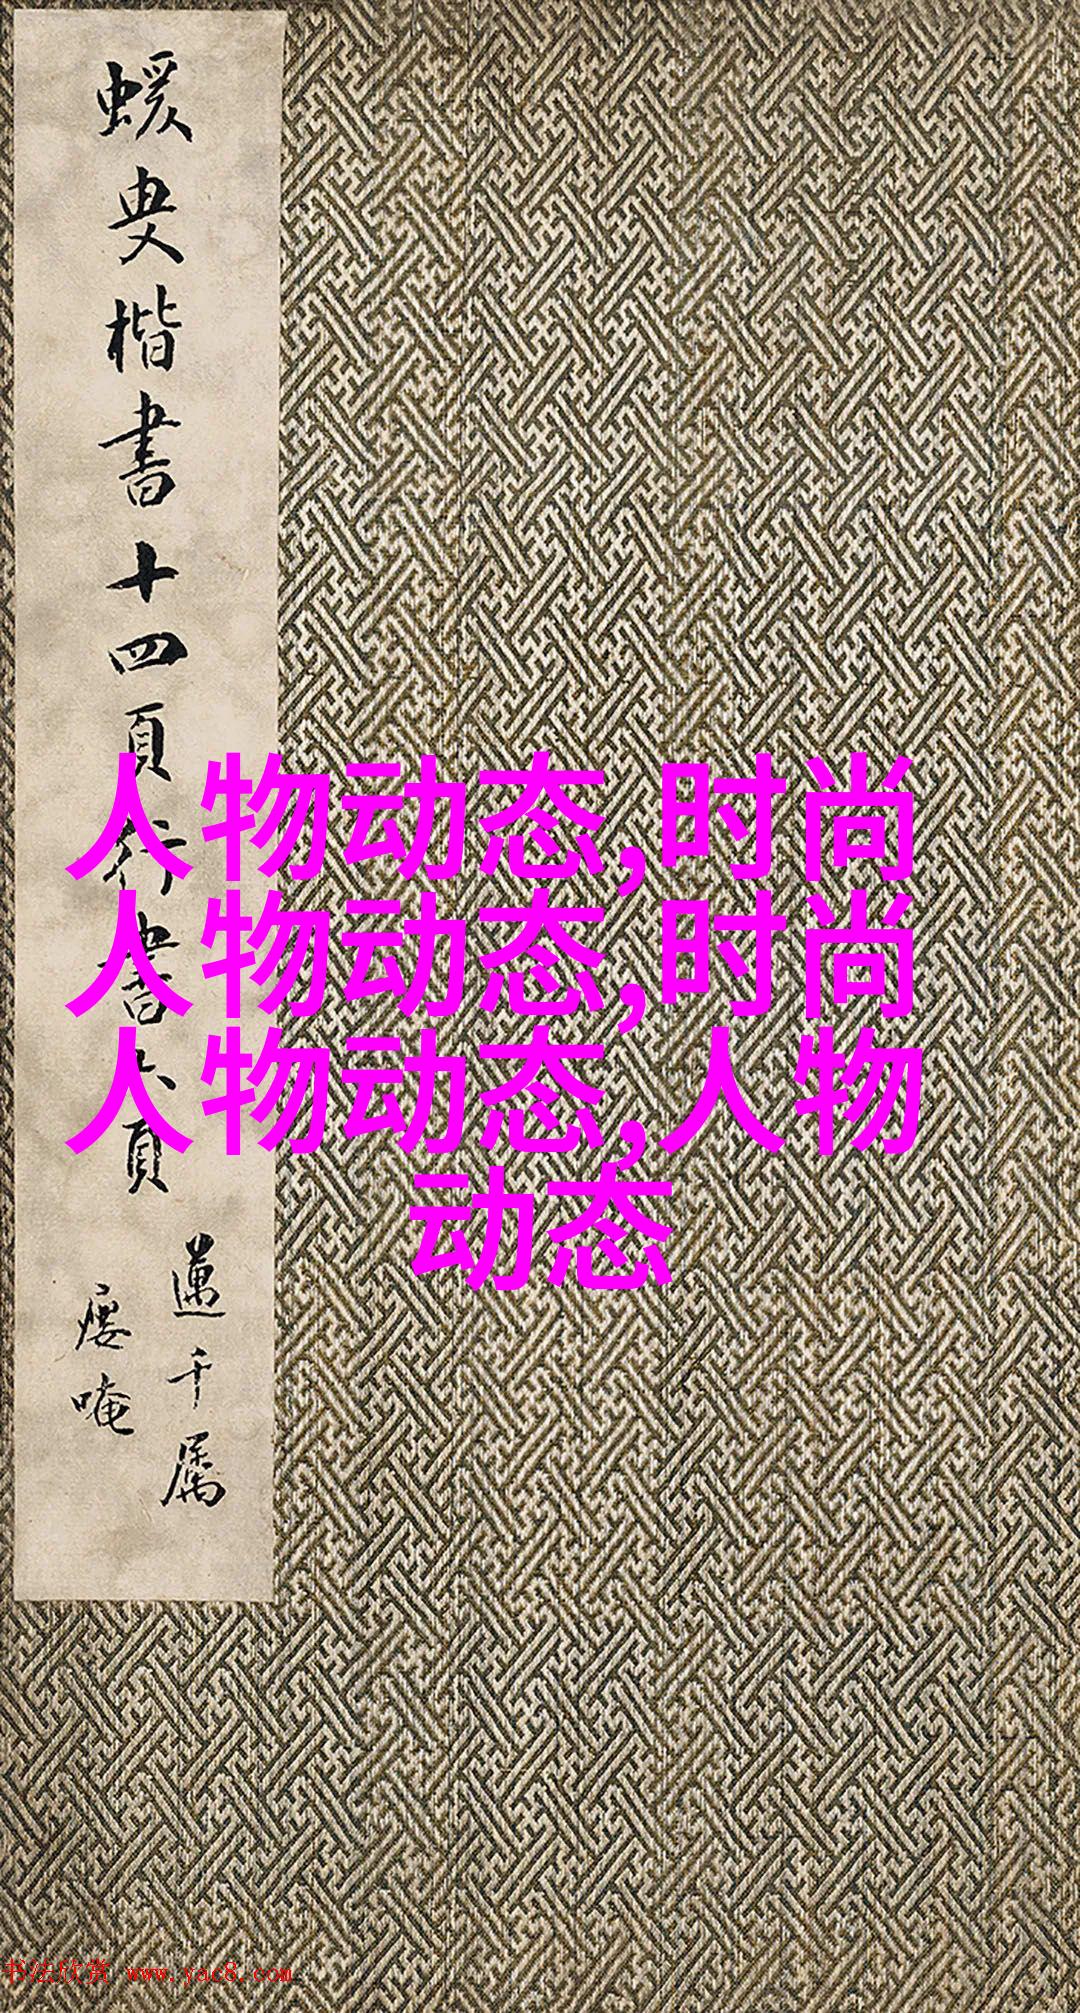 蝯叟楷書十四頁行書六頁
邁千屬
瘦唵
人物动态,时尚
人物动态,时尚
人物动态,人物
动态
书法欣赏 www.yac8.com